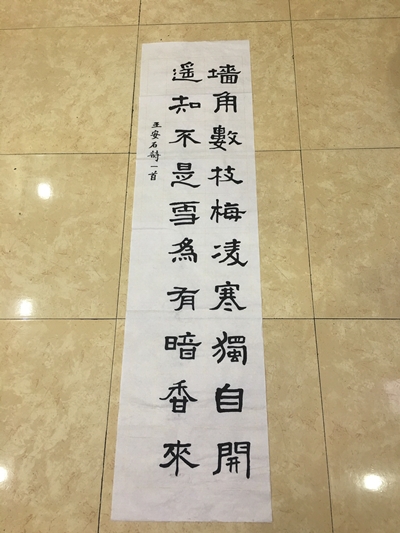 墙角數枝梅凌寒獨自開
遥知不是雪為有暗香來
王安石詩一首